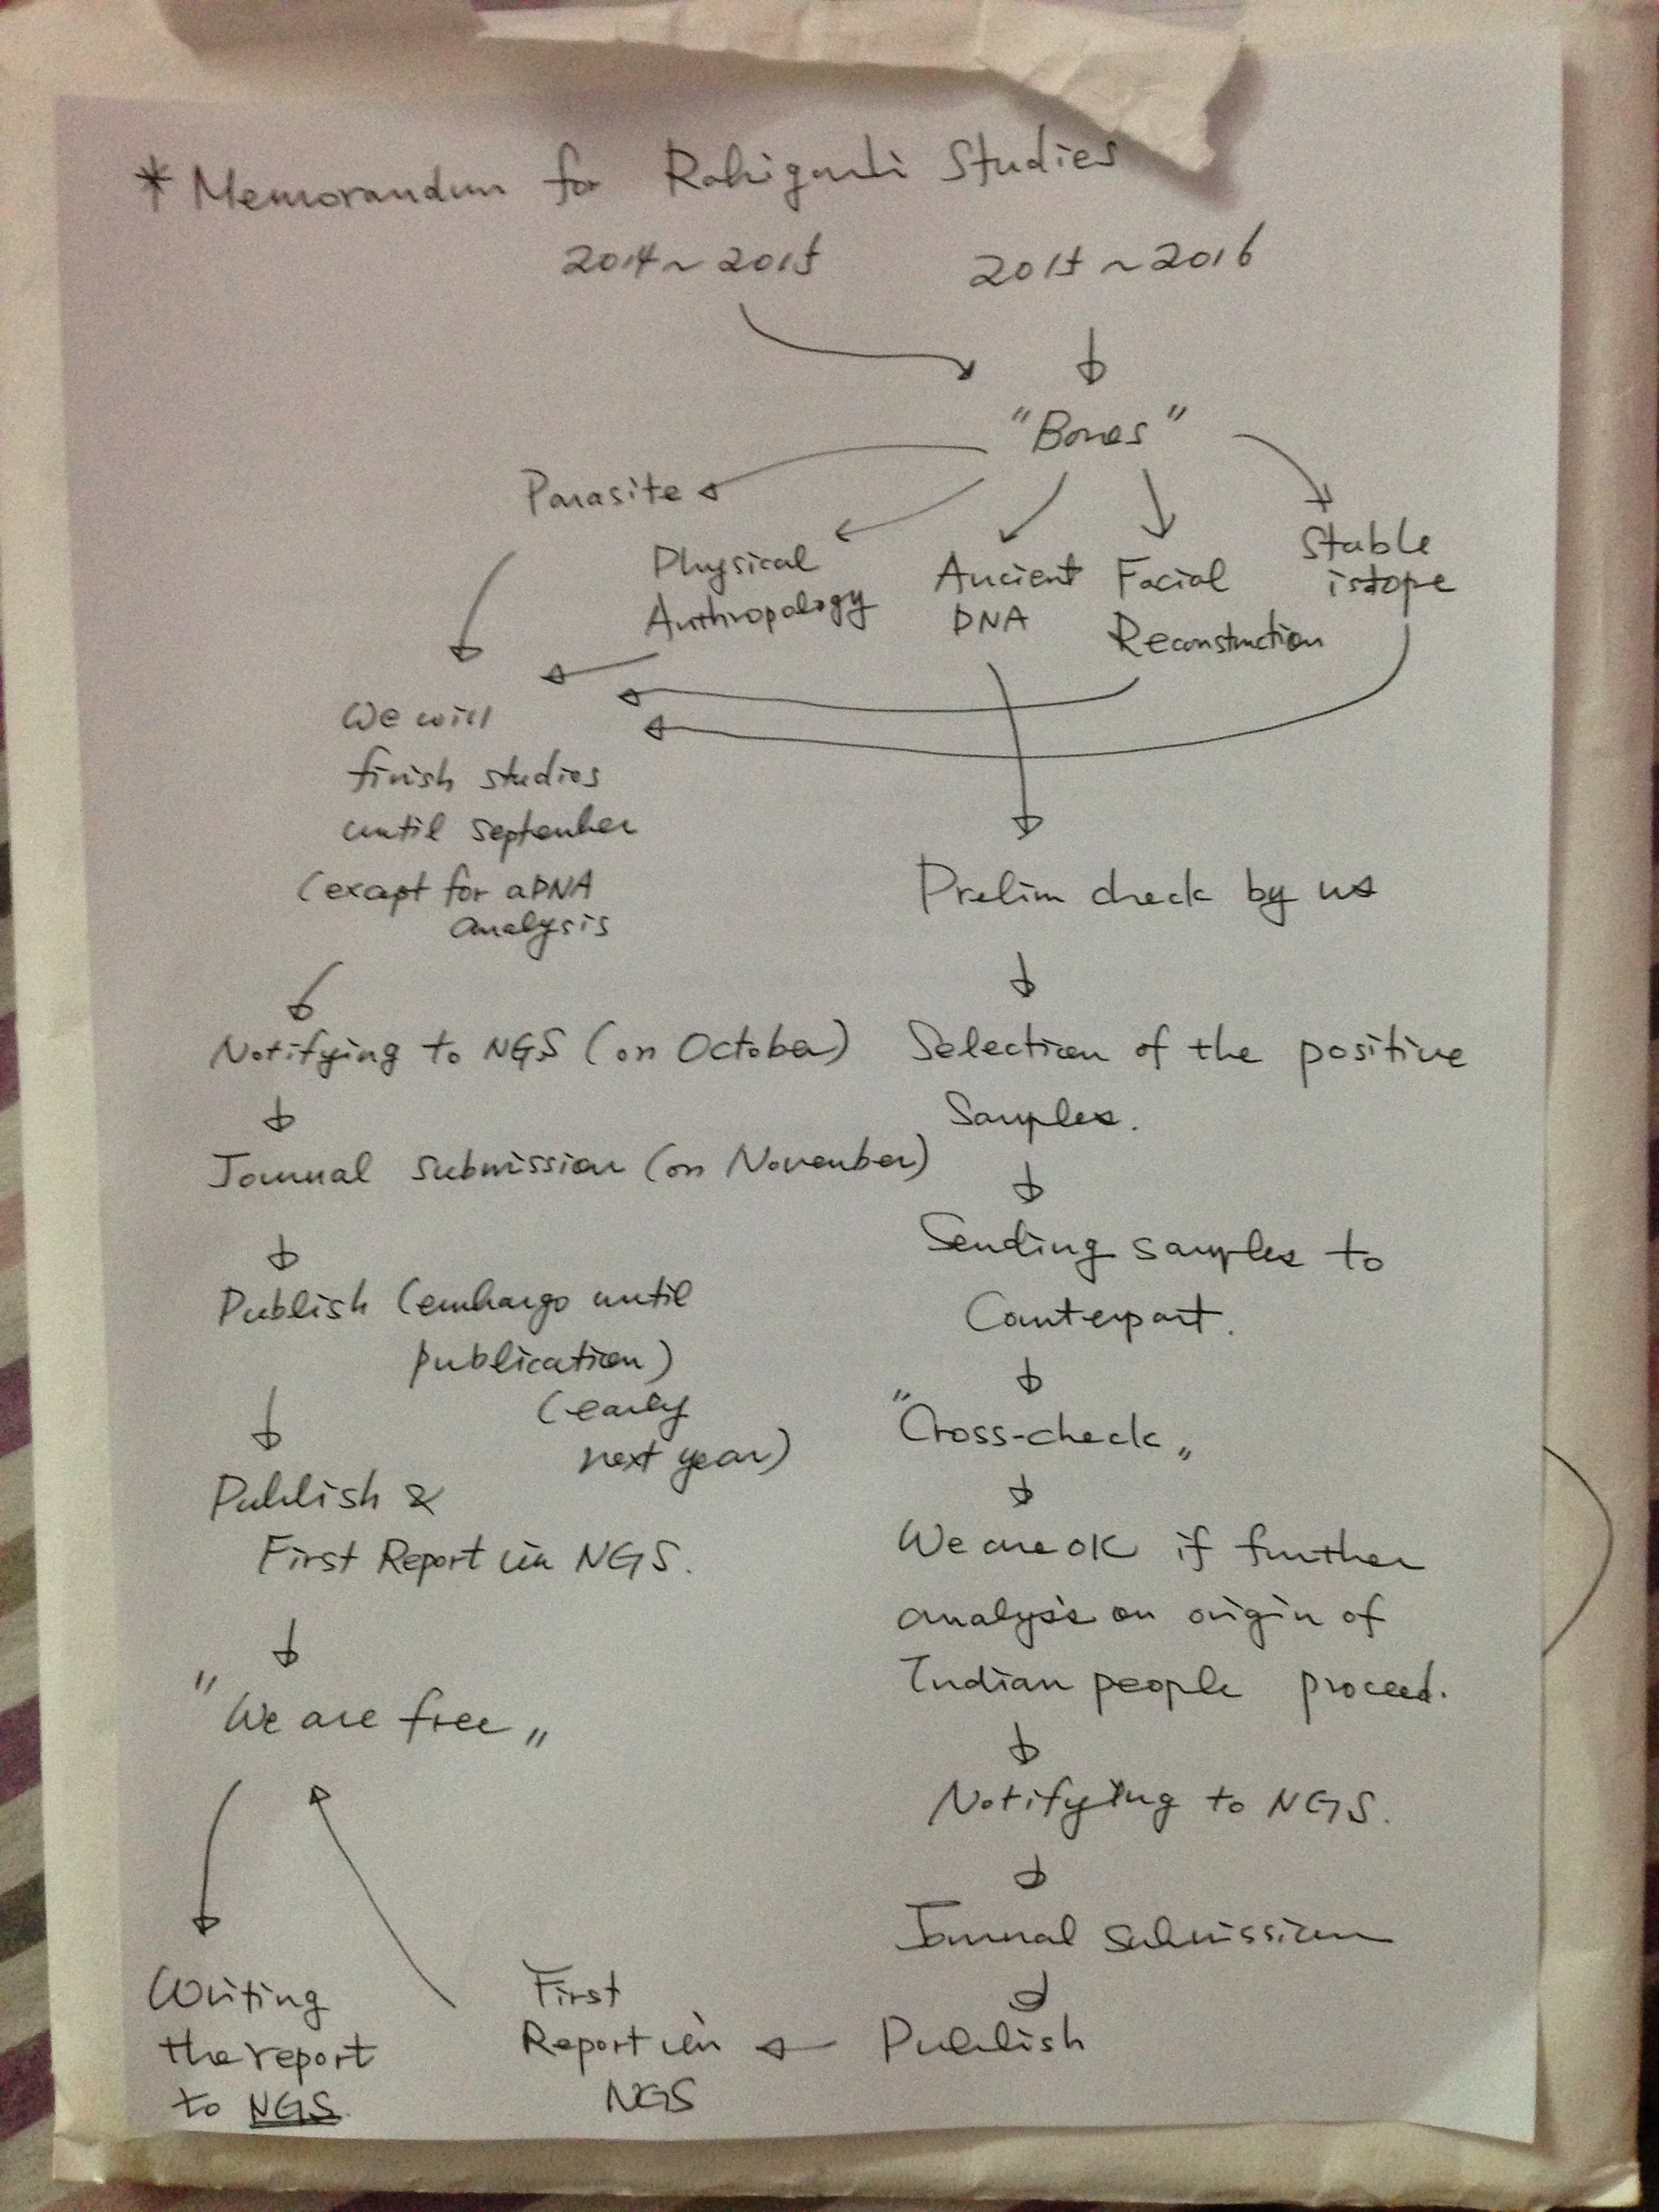 * Memorandum for Rakigarhi Studies
2014 ~ 2015
2015 ~ 2016
"Bones"
Parasite
Physical
Anthropology
Ancient
DNA
Facial
Reconstruction
Stable
istope
We will
finish studies
until september
(except for aDNA
analysis
Notifying to NGS (on October)
Journal submission (on November)
Publish (embargo until
publication)
(early
next year)
Publish &
First Report in NGS.
"We are free"
Writing
the report
to NGS.
Prelim check by us
Selection of the positive
Samples.
Sending samples to
Counterpart.
"Cross-check"
We are OK if further
analysis on origin of
Indian people proceed.
Notifying to NGS.
Journal submission
Publish
First
Report in
NGS